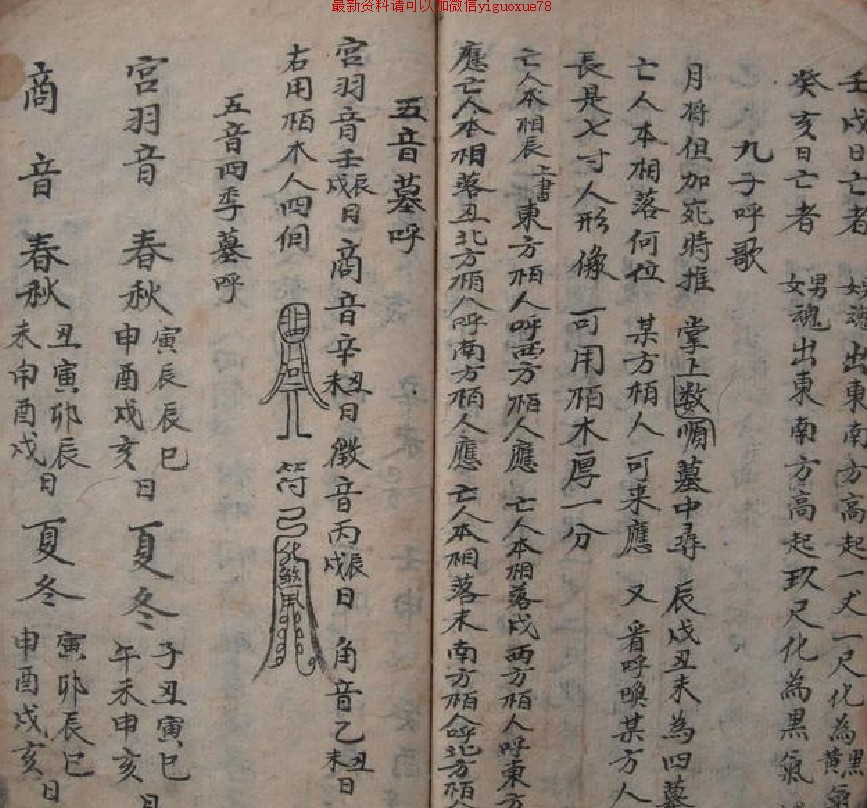 最新资料请可以加微信yiguoxue78
壬戌日亡者 出東南方高起一丈一尺化為黑黃氣
癸亥日亡者 男女魂出東南方高起玖尺化為黑氣
九子呼歌
月將但加死時推 掌上数順墓中尋 辰戌丑未為四墓
亡人本相落何位 某方栢人可来應 又看呼喚某方人
長是七寸人形像 可用栢木厚一分
亡人本相辰上書東方栢人呼西方栢人應 亡人本相落戌西方栢人呼東方
應亡人本相落丑北方栢人呼南方栢人應 亡人本相落未南方栢人呼北方栢人
五音墓呼
宮羽音壬辰戌日 商音辛丑未日 徵音丙辰戌日 角音乙丑未日
右用栢木人四個 符曰
五音四季墓呼
宮羽音 春秋 寅辰辰巳申酉戌亥日 夏冬 子丑寅巳午未申亥日
商音 春秋 丑寅卯辰未申酉戌日 夏冬 寅卯辰巳申酉戌亥日